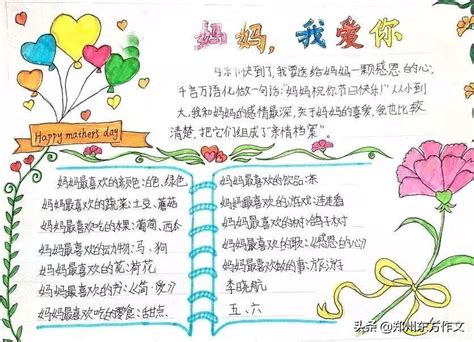 妈妈，我爱你
Happy mathers day
快到了，我要送给妈妈一颗感恩的心，
千言万语化做一句话："妈妈祝你节日快乐！"从小到
大，我和妈妈的感情最深，关于妈妈的喜爱，我也比较
清楚，把它们组成了"亲情档案"。
妈妈最喜欢的颜色：白色、绿色
妈妈最喜欢的蔬菜：土豆、蘑菇
妈妈最喜欢的水果：葡萄、西瓜
妈妈最喜欢的动物：马、狗
妈妈最喜欢的花：荷花
妈妈最喜欢的书：《简·爱》
妈妈最喜欢吃的零食：甜点
妈妈最喜欢的饮品：茶
妈妈最喜欢的游戏：连连看
妈妈最喜欢的树：鸽子树
妈妈最喜欢的歌：《感恩的心》
妈妈最喜欢做的事：旅游
李晓航
五、六
头条 @郑州东方作文